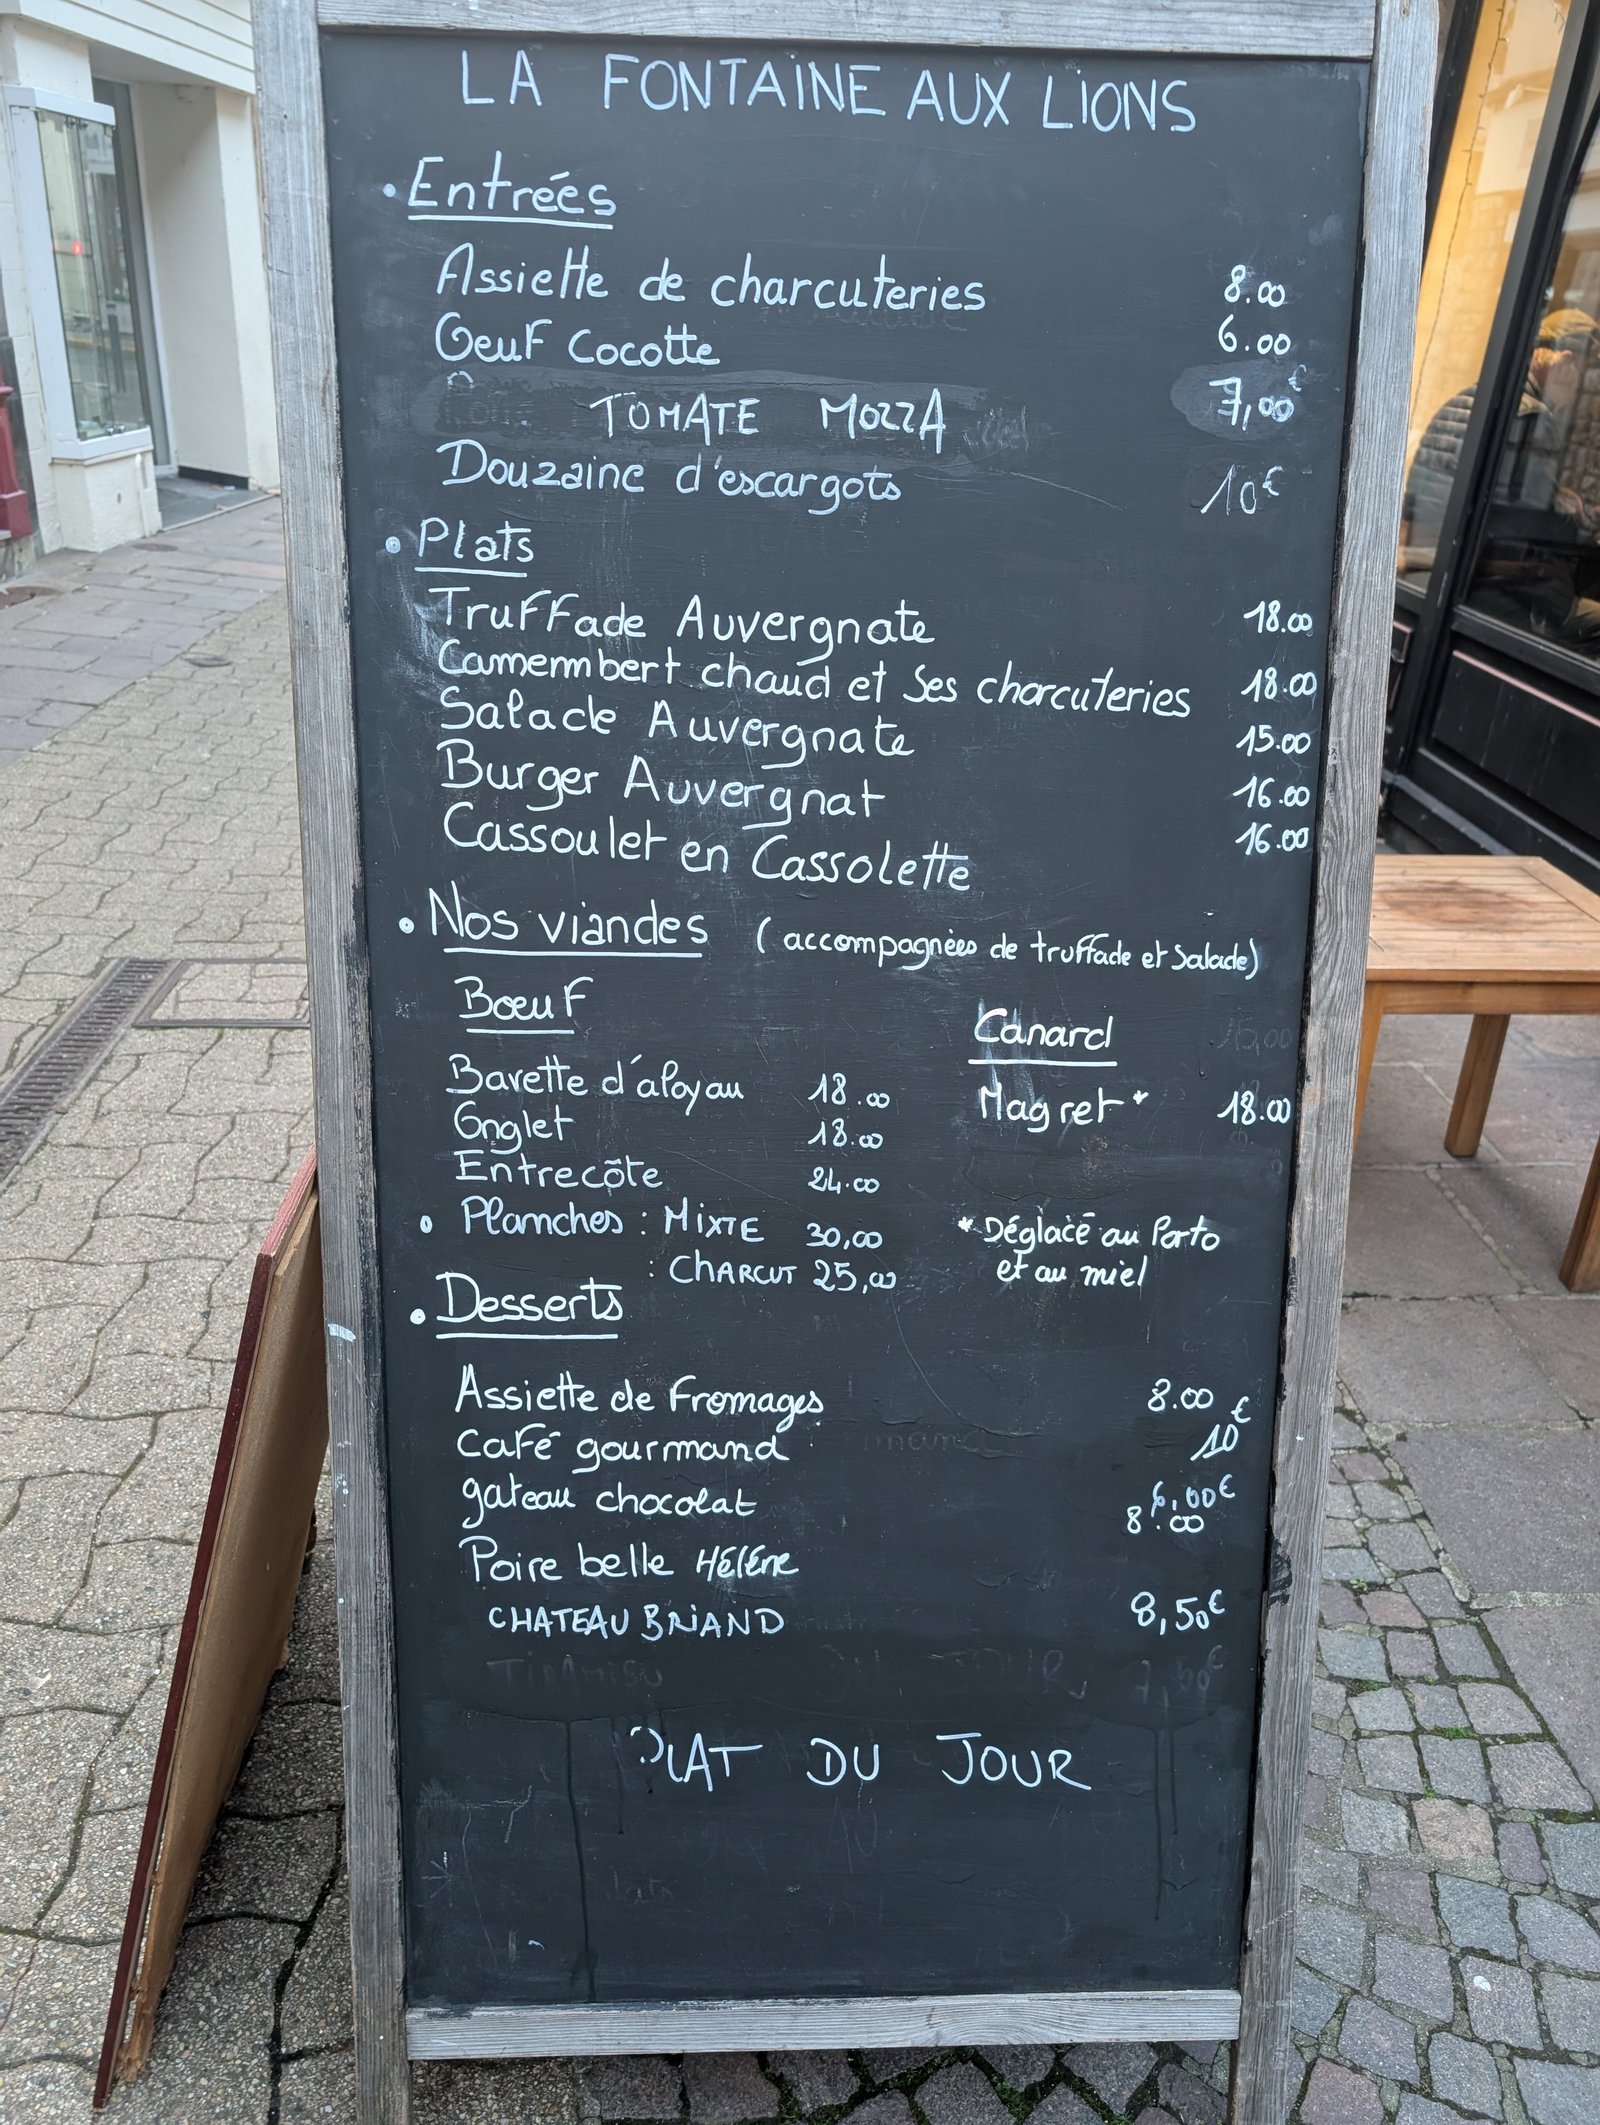 LA FONTAINE AUX LIONS
• Entrées
Assiette de charcuteries 8.00
Oeuf cocotte 6.00
TOMATE MOZZA 7,00€
Douzaine d'escargots 10€
• Plats
Truffade Auvergnate 18.00
Camembert chaud et ses charcuteries 18.00
Salade Auvergnate 15.00
Burger Auvergnat 16.00
Cassoulet en Cassolette 16.00
• Nos viandes (accompagnées de truffade et salade)
Bœuf
Bavette d'aloyau 18.00
Onglet 18.00
Entrecôte 24.00
Canard
Magret* 18.00
• Planches : MIXTE 30,00
: CHARCUT 25,00
* Déglacé au Porto
et au miel
• Desserts
Assiette de Fromages 8.00
Café gourmand 10€
gateau chocolat 6,00€
Poire belle Hélène 8.00
CHATEAUBRIAND 8,50€
TIRAMISU 7,50€
PLAT DU JOUR